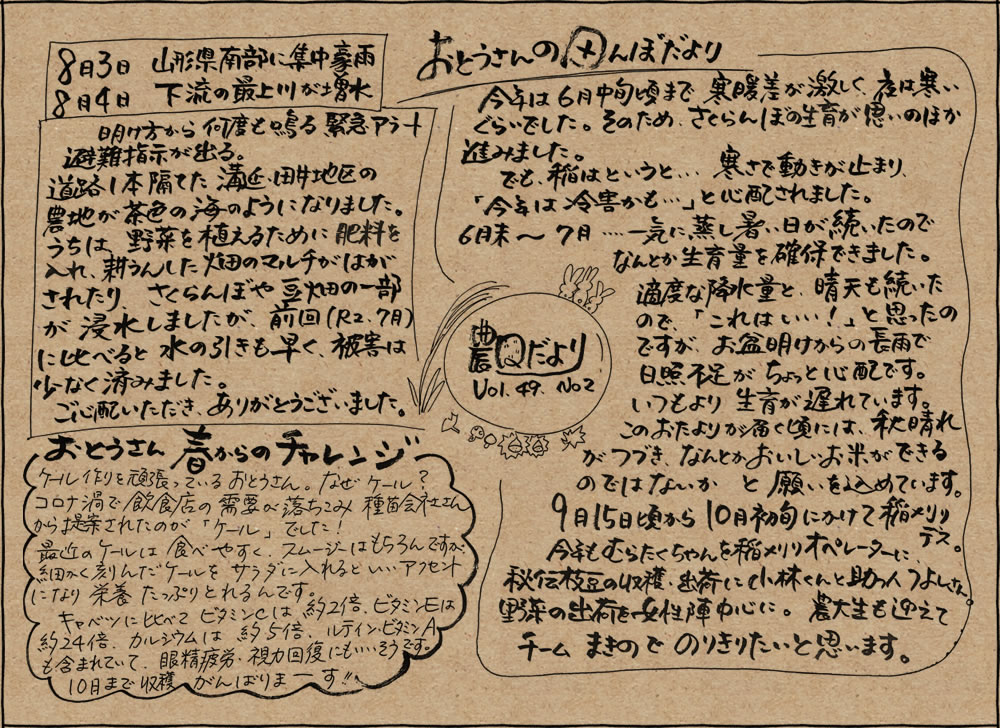 8月3日 山形県南部に集中豪雨
8月4日 下流の最上川が増水
明け方から何度も鳴る緊急アラート
避難指示が出る。
道路1本隔てた溝延・田井地区の
農地が茶色の海のようになりました。
うちは、野菜を植えるために肥料を
入れ、耕うんした畑のマルチがはが
されたり、さくらんぼや豆畑の一部
が浸水しましたが、前回(R2.7月)
に比べると水の引きも早く、被害は
少なく済みました。
ご心配いただき、ありがとうございました。
おとうさん 春からのチャレンジ
ケール作りを頑張っているおとうさん。なぜケール?
コロナ渦で飲食店の需要が落ちこみ種苗会社さん
から提案されたのが「ケール」でした!
最近のケールは食べやすく、スムージーはもちろんですが、
細かく刻んだケールをサラダに入れるといいアクセント
になり栄養たっぷりとれるんです。
キャベツに比べてビタミンCは約2倍、ビタミンEは
約24倍、カルシウムは約5倍、ルテイン・ビタミンA
も含まれていて、眼精疲労、視力回復にもいいそうです。
10月まで収穫がんばりまーす!!
農田だより
Vol.49. No2
おとうさんの田んぼだより
今年は6月中旬頃まで寒暖差が激しく、夜は寒い
ぐらいでした。そのため、さくらんぼの生育が思いのほか
進みました。
でも、稲はというと… 寒さで動きが止まり、
「今年は冷害かも…」と心配されました。
6月末〜7月…一気に蒸し暑い日が続いたので
なんとか生育量を確保できました。
適度な降水量と、晴天も続いた
ので、「これはいい…!」と思ったの
ですが、お盆明けからの長雨で
日照不足がちょっと心配です。
いつもより生育が遅れています。
このおたよりが届く頃には、秋晴れ
がつづき、なんとかおいしいお米ができる
のではないか と願いを込めています。
9月15日頃から10月初旬にかけて稲刈り
デス。
今年もむらたくちゃんを稲刈りオペレーターに、
秘伝枝豆の収穫・出荷に小林くんと助っ人うよしさん。
野菜の出荷を女性陣中心に。農大生も迎えて
チームまきのでのりきりたいと思います。